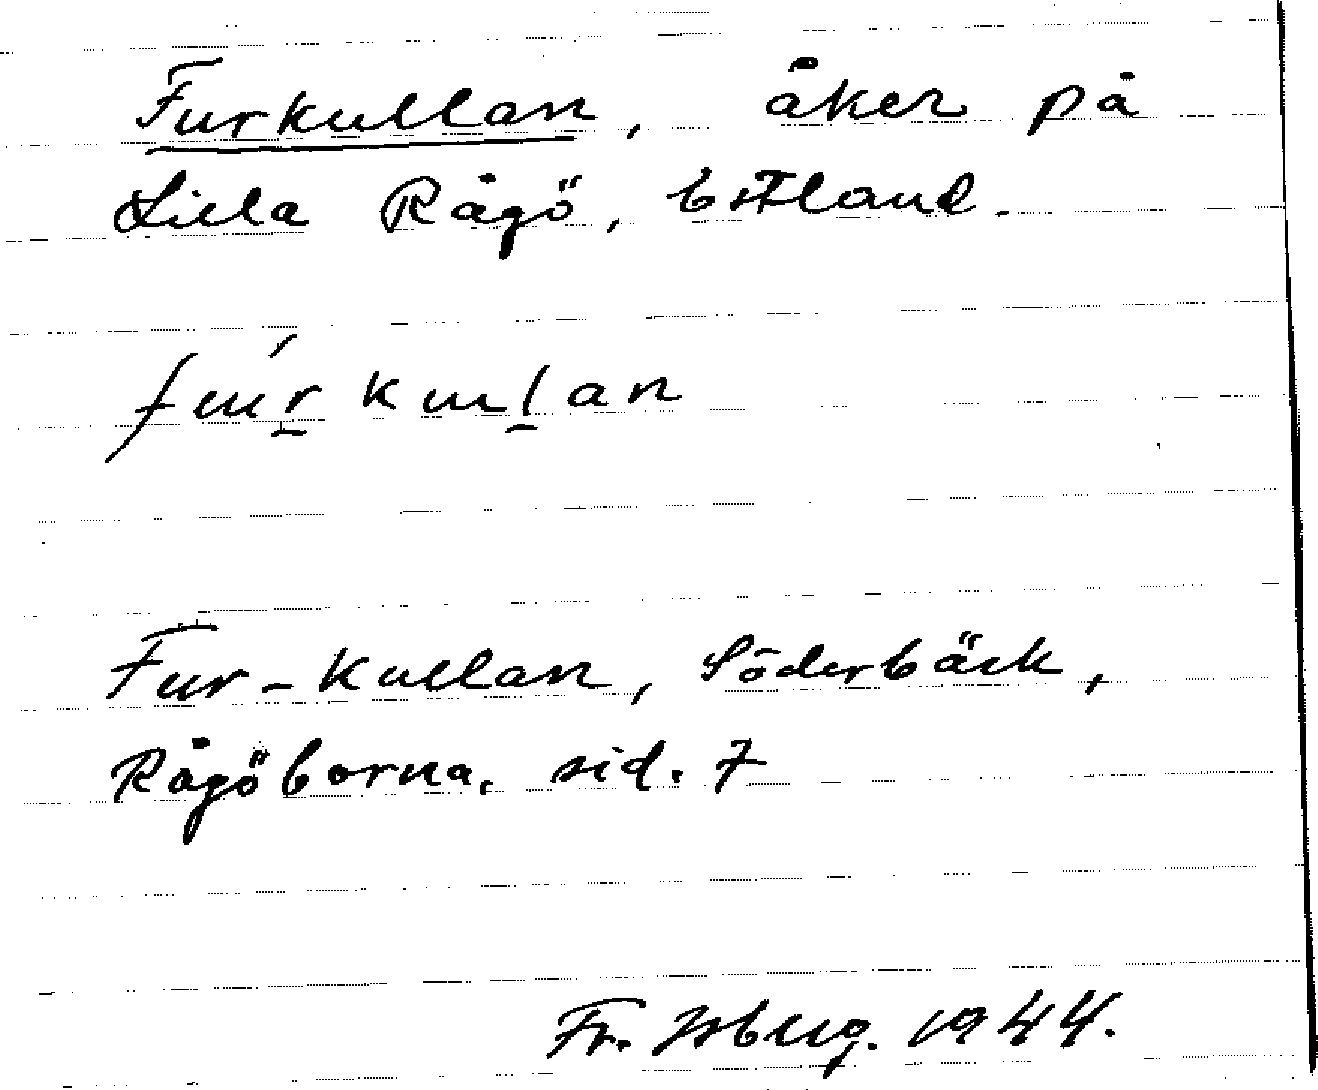 Furkullan, åker på
Lilla Rågö, Estland.
fur´kulan
Fur-kullan, Söderbäck,
Rågöborna, sid. 7
Fr. Isberg. 1944.